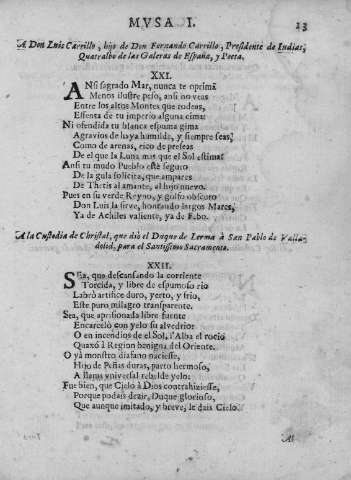 MUSA I. 23
A Don Luis Carrillo, hijo de Don Fernando Carrillo, Presidente de Indias,
Quatralbo de las Galeras de España, y Poeta.
XXI.
ANsi sagrado Mar, nunca te oprima
Menos ilustre peso, ansi no veas
Entre los altos Montes que rodeas,
Essenta de tu imperio alguna cima:
Ni ofendida tu blanca espuma gima
Agravios de haya humilde, y siempre seas,
Como de arenas, rico de preseas
De el que la Luna mas que el Sol estima:
Ansi tu mudo Pueblo esté seguro
De la gula solicita, que ampares
De Thetis al amante, al hijo nuevo.
Pues en su verde Reyno, y golfo obscuro
Don Luis la sirve, honrando largos Mares,
Ya de Achiles valiente, ya de Febo.
A la Custodia de Christal, que dió el Duque de Lerma à San Pablo de Valla-
dolid, para el Santissimo Sacramento.
XXII.
SEa, que descansando la corriente
Torcida, y libre de espumoso rio
Labrò artifice duro, yerto, y frio,
Este puro milagro transparente.
Sea, que aprisionada libre fuente
Encarcelò con yelo su alvedrio:
O en incendios de el Sol, l'Alba el rocio
Quaxò à Region benigna del Oriente.
O yà monstro diafano naciesse,
Hijo de Peñas duras, parto hermoso,
A llama universal rebelde yelo:
Fue bien, que Cielo à Dios contrahiziesse,
Porque podais dezir, Duque glorioso,
Que aunque imitado, y breve, le dais Cielo.
Al